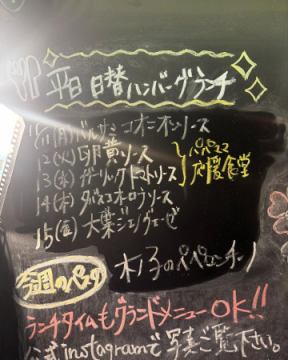 平日 日替ハンバーグランチ
11(月) バルサミコオニオンソース
12(火) 卵黄ソース
13(水) ガーリックトマトソース
パパママ応援食堂
14(木)
15(金) 大葉ジェノヴェーゼ
今週のパスタ
木ノ子のペペロンチーノ
ランチタイムもグランドメニューOK!!
公式instagramで写真ご覧下さい。